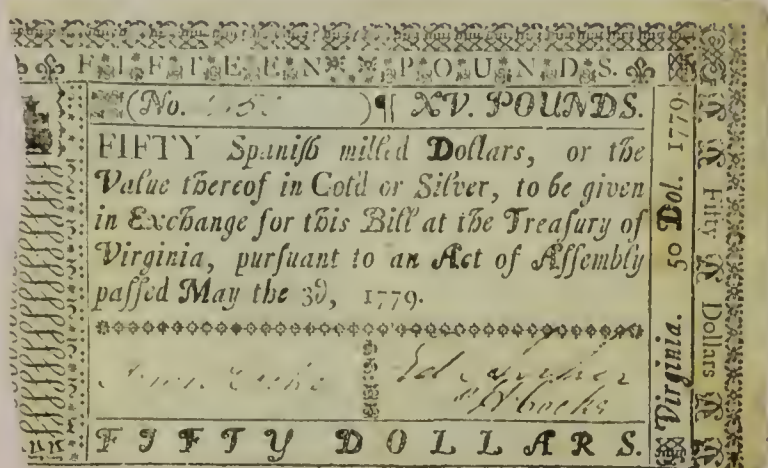 FIFTEEN POUNDS.
(No. ) ¶ XV. POUNDS.
FIFTY Spaniſh milled Dollars, or the
Value thereof in Gold or Silver, to be given
in Exchange for this Bill at the Treaſury of
Virginia, purſuant to an Act of Aſſembly
paſſed May the 3d, 1779.
FIFTY DOLLARS.
Virginia. 50 Dol. 1779.
Fifty Dollars